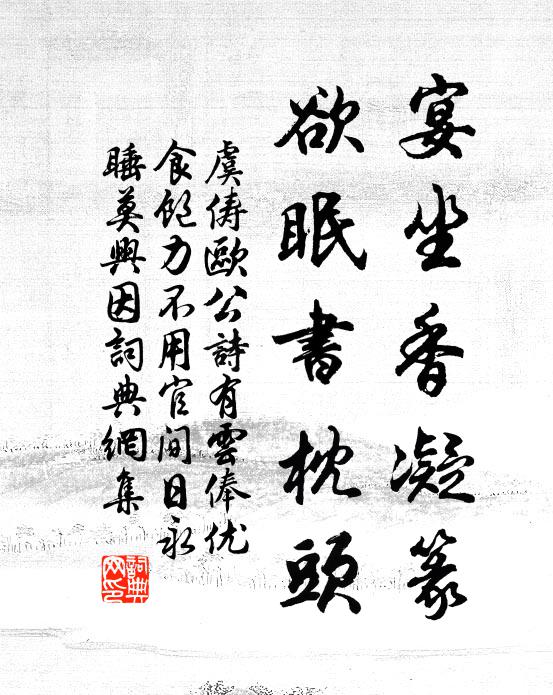 宴坐香凝篆
欲眠書枕頭
虞儔歐公詩有雲俸优
食飽力不用官间日永
睡莫興因詞典網集
詞典网印